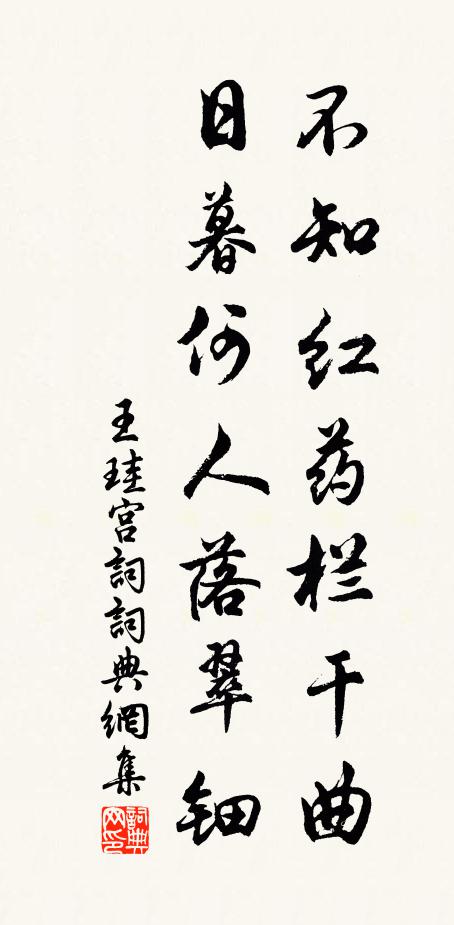 不知红药栏干曲
日暮何人落翠钿
王珪宫词詞典網集
詞典网印